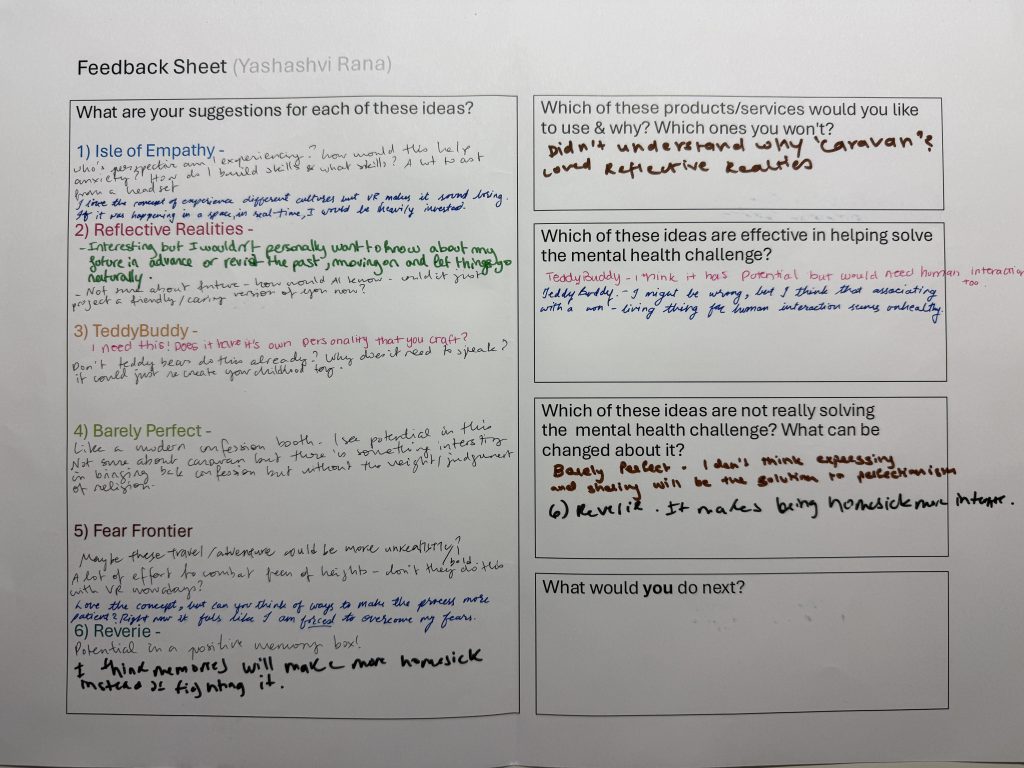 Feedback Sheet (Yashashvi Rana)
What are your suggestions for each of these ideas?
1) Isle of Empathy -
who's perspective am I experiencing? How would this help
anxiety? How do I build skills & what skills? A lot to ask
from a headset
I love the concept of experience different cultures but VR makes it sound boring.
If it was happening in a space, in real-time, I would be heavily invested.
2) Reflective Realities -
- Interesting but I wouldn't personally want to know about my
future in advance or revisit the past, moving on and let things go
naturally.
- Not sure about future - how would AI know - would it just
project a friendly/caring version of you now?
3) TeddyBuddy -
I need this! Does it have it's own personality that you craft?
Don't teddy bears do this already? Why does it need to speak?
it could just re create your childhood toy.
4) Barely Perfect -
Like a modern confession booth - I see potential in this
Not sure about caravan but there is something intersting
in bringing back confession but without the weight/judgement
of religion.
5) Fear Frontier
Maybe these travel/adventure could be more unrealistly/bold?
A lot of effort to combat fear of heights - don't they do this
with VR nowadays?
Love the concept, but can you think of ways to make the process more
patient? Right now it feels like I am forced to overcome my fears.
6) Reverie -
Potential in a positive memory box!
I think memories will make more homesick
instead of fighting it.
Which of these products/services would you like
to use & why? Which ones you won't?
Didn't understand why 'caravan'?
Loved Reflective Realties
Which of these ideas are effective in helping solve
the mental health challenge?
TeddyBuddy - I think it has potential but would need human interaction
too.
Teddy Buddy - I might be wrong, but I think that associating
with a non-living thing for human interaction seems unhealthy.
Which of these ideas are not really solving
the mental health challenge? What can be
changed about it?
Barely Perfect. I don't think expressing
and sharing will be the solution to perfectionism
6) Reverie. It makes being homesick more intense.
What would you do next?